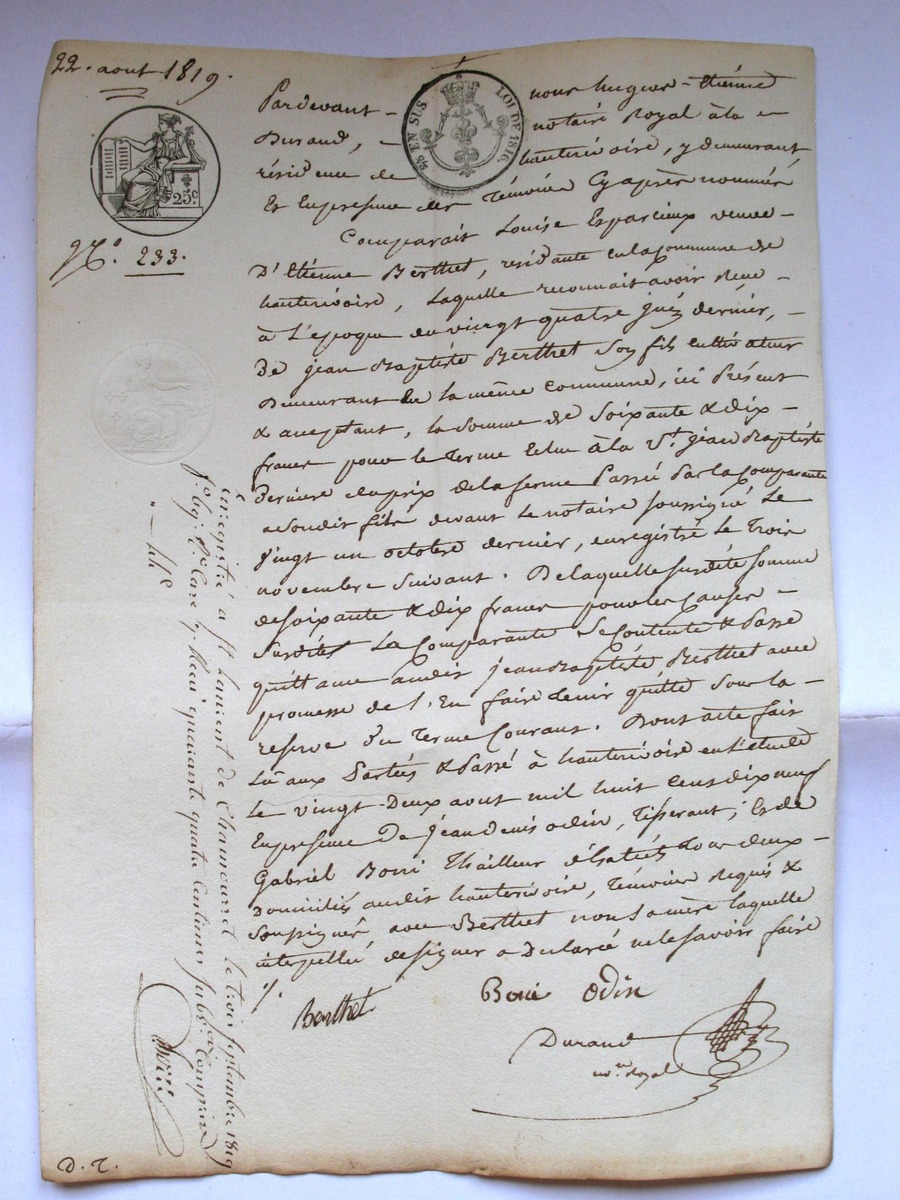 22. aout 1819.
25 EN SUS
LOI DE 1816.
25c
N.° 233.
Pardevant nous hugues-Etiénne
Durand, notaire Royal à la
résidence de hauterivoire, y demeurant
Et En presence des Témoins Cy après nommés
Comparait Louise Esparcieux veuve
D'Etiénne Berthet, residante en la Commune de
hauterivoire, Laquelle reconnait avoir Reçu
à L'époque du vingt quatre juin dernier,
De jean Baptiste Berthet Son fils cultivateur
Demeurant en la même commune, ici Présent
& acceptant, la Somme de Soixante & dix
francs pour le Terme Echu à la St. jean Baptiste
derniere du prix de la ferme Passée Par la Comparante
a Soudit fils devant le notaire soussigné le
vingt un octobre dernier, enregistré le Trois
novembre Suivant. De laquelle susdite Somme
de soixante & dix francs pour les Causes
Susdites La Comparante Se Contente & Passe
quittance audit jean Baptiste Berthet avec
promesse de L'En faire tenir quitte Sous la
reserve du Terme Courant. Dont acte fait
Lu aux Parties & Passé à hauterivoire en L'etude
Le vingt-Deux aout mil huit Cent dix neuf
En presence De jean Denis odin, Tisserant; Et de
Gabriel Boiri Thailleur d'habits tous deux
Domiciliés audit hauterivoire, Témoins Requis &
Soussignés avec Berthet non Sa mère laquelle
interpellée de signer a Declaré ne le savoir faire
Berthet
Odin
Durand
no.re Royal
Enregistré à St Laurent de Chamousset le trois septembre 1819
f.° Reçu quarante quatre centimes Subv.on Comprise
D. T.